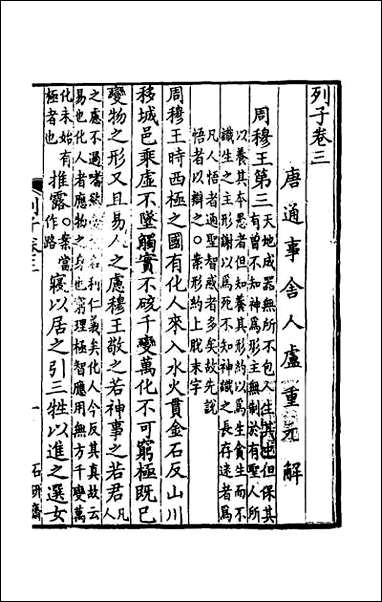 列子卷三
唐通事舍人盧重元解
周穆王第三
天地成器無所不包人生其也但保其
有曾不知神為形主無制於有聖人所
以養其本愚者但知養其形約以為生貪生而不
識生之主形謝以為死不知神識之長存迷者為
凡人悟者通聖智惑者多矣故先說
悟者以辯之○案形約上脫末字
周穆王時西極之國有化人來入水火貫金石反山川
移城邑乘虛不墜觸實不硋千變萬化不可窮極既已
變物之形又且易人之慮穆王敬之若神事之若君
凡人
之慮不過嗜慾名利仁義矣化人今反其真故云
易也化人者應物之身也窮理極智應用無方千變萬
化未始有
極者也
推露
○案當
作路
寢以居之引三牲以進之選女
列子卷三
一
石研齋